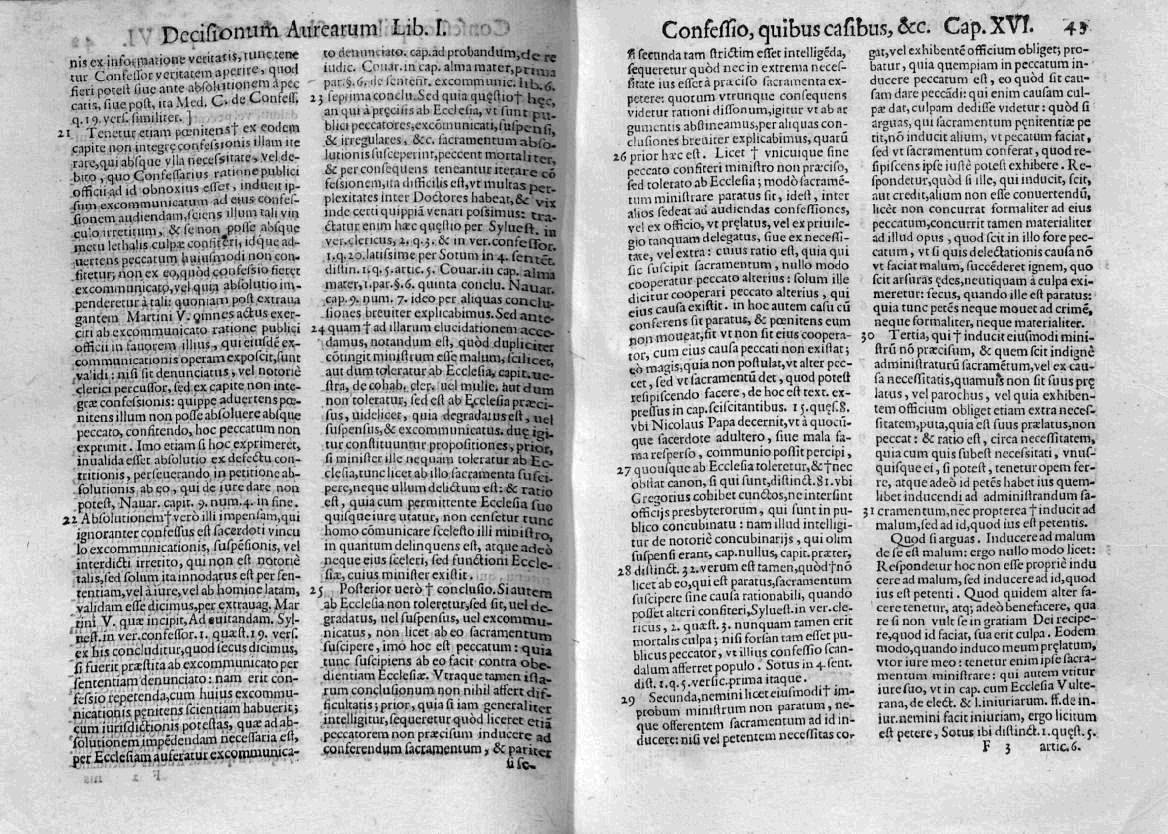 Decisionum Aurearum Lib. I.
nis ex informatione veritatis, tunc tene
tur Confessor veritatem aperire, quod
fieri potest siue ante absolutionem à pec
catis, siue post, ita Med. C. de Confess.
q. 19. vers. similiter.
21 Tenetur etiam pœnitens† ex eodem
capite non integre confessionis illam ite
rare, qui absque vlla necessitate, vel de-
bito, quo Confessarius ratione publici
officii ad id obnoxius esset, inducit ip-
sum excommunicatum ad eius confes-
sionem audiendam, sciens illum tali vin
culo irretitum, & se non posse absque
metu lethalis culpæ confiteri, idque ad-
uertens peccatum huiusmodi non con-
fitetur, non ex eo, quòd confessio fieret
excommunicato, vel quia absolutio im-
penderetur à tali: quoniam post extraua
gantem Martini V. omnes actus exer-
citi ab excommunicato ratione publici
officii in fauorem illius, qui eiusdē ex-
communicationis operam exposcit, sunt
validi: nisi sit denunciatus, vel notoriè
clerici percussor, sed ex capite non inte-
græ confessionis: quippe aduertens pœ-
nitens illum non posse absoluere absque
peccato, confitendo, hoc peccatum non
exprimit. Imo etiam si hoc exprimeret,
inualida esset absolutio ex defectu con-
tritionis, perseuerando in petitione ab-
solutionis ab eo, qui de iure dare non
potest, Nauar. capit. 9. num. 4. in fine.
22 Absolutionem† verò illi impensam, qui
ignoranter confessus est sacerdoti vincu
lo excommunicationis, suspēsionis, vel
interdicti irretito, qui non est notoriè
talis, sed solum ita innodatus est per sen-
tentiam, vel à iure, vel ab homine latam,
validam esse dicimus, per extrauag. Mar
tini V. quæ incipit, Ad euitandam. Syl-
uest. in ver. confessor. 1. quæst. 19. vers.
ex his concluditur, quod secus dicimus,
si fuerit præstita ab excommunicato per
sententiam denunciato: nam erit con-
fessio repetenda, cum huius excommu-
nicationis penitens scientiam habuerit;
cum iurisdictionis potestas, quæ ad ab-
solutionem impēdendam necessaria est,
per Ecclesiam auferatur excommunica-
to denunciato. cap. ad probandum, de re
iudic. Couar. in cap. alma mater, prima
par. §. 6. de sentent. excommunic. lib. 6.
23 septima conclu. Sed quia quęstio† hęc,
an qui à pręcisis ab Ecclesia, vt sunt pu-
blici peccatores, excōmunicati, suspēsi,
& irregulares, &c. sacramentum abso-
lutionis susceperint, peccent mortaliter,
& per consequens teneantur iterare cō
fessionem, ita difficilis est, vt multas per-
plexitates inter Doctores habeat, & vix
inde certi quippiā venari possimus: tra-
ctatur enim hæc questio per Syluest. in
ver. clericus, 2. q. 3. & in ver. confessor.
1. q. 20. latissime per Sotum in 4. sentēt.
distin. 1. q. 5. artic. 5. Couar. in cap. alma
mater, 1. par. §. 6. quinta conclu. Nauar.
cap. 9. num. 7. ideo per aliquas conclu-
siones breuiter explicabimus. Sed ante-
24 quam† ad illarum elucidationem acce-
damus, notandum est, quòd dupliciter
cōtingit ministrum esse malum, scilicet,
aut dum toleratur ab Ecclesia, capit. ue-
stra, de cohab. cler. uel mulie. aut dum
non toleratur, sed est ab Ecclesia præci-
sus, uidelicet, quia degradatus est, uel
suspensus, & excommunicatus. duę igi-
tur constituuntur propositiones, prior,
si minister ille nequam toleratur ab Ec-
clesia, tunc licet ab illo sacramenta susci-
pere, neque ullum delictum est: & ratio
est, quia cum permittente Ecclesia suo
quisque iure utatur, non censetur tunc
homo cōmunicare scelesto illi ministro,
in quantum delinquens est, atque adeò
neque eius sceleri, sed functioni Eccle-
siæ, cuius minister existit.
25 Posterior uerò † conclusio. Si autem
ab Ecclesia non toleretur, sed sit, uel de-
gradatus, uel suspensus, uel excommu-
nicatus, non licet ab eo sacramentum
suscipere, imò hoc est peccatum: quia
tunc suscipiens ab eo facit contra obe-
dientiam Ecclesiæ. Vtraque tamen ista-
rum conclusionum non nihil affert dif-
ficultatis; prior, quia si iam generaliter
intelligitur, sequeretur quòd liceret etiā
peccatorem non præcisum inducere ad
conferendum sacramentum, & pariter
si se-
Confessio, quibus casibus, &c. Cap. XVI. 43
si secunda tam strictim esset intelligēda,
sequeretur quòd nec in extrema neces-
sitate ius esset à præciso sacramenta ex-
petere: quorum vtrunque consequens
videtur rationi dissonum, igitur vt ab ar
gumentis abstineamus, per aliquas con-
clusiones breuiter explicabimus, quarū
26 prior hæc est. Licet † vnicuique sine
peccato confiteri ministro non præciso,
sed tolerato ab Ecclesia; modò sacramē-
tum ministrare paratus sit, idest, inter
alios sedeat ad audiendas confessiones,
vel ex officio, vt pręlatus, vel ex priuile-
gio tanquam delegatus, siue ex necessi-
tate, vel extra: cuius ratio est, quia qui
sic suscipit sacramentum, nullo modo
cooperatur peccato alterius: solum ille
dicitur cooperari peccato alterius, qui
eius causa existit. in hoc autem casu cū
conferens sit paratus, & pœnitens eum
non moueat, fit vt non sit eius coopera-
tor, cum eius causa peccati non existat;
eò magis, quia non postulat, vt alter pec-
cet, sed vt sacramentū det, quod potest
resipiscendo facere, de hoc est text. ex-
pressus in cap. sciscitantibus. 15. quęs. 8.
vbi Nicolaus Papa decernit, vt à quocū-
que sacerdote adultero, siue mala fa-
ma resperso, communio possit percipi,
27 quousque ab Ecclesia toleretur, &† nec
obstat canon, si qui sunt, distinct. 81. vbi
Gregorius cohibet cunctos, ne intersint
officijs presbyterorum, qui sunt in pu-
blico concubinatu: nam illud intelligi-
tur de notoriè concubinarijs, qui olim
suspensi erant, cap. nullus, capit. præter,
28 distinct. 32. verum est tamen, quòd† nō
licet ab eo, qui est paratus, sacramentum
suscipere sine causa rationabili, quando
posset alteri confiteri, Syluest. in ver. cle-
ricus, 2. quæst. 3. nunquam tamen erit
mortalis culpa; nisi forsan tam esset pu-
blicus peccator, vt illius confessio scan-
dalum afferret populo. Sotus in 4. sent.
dist. 1. q. 5. versic. prima itaque.
29 Secunda, nemini licet eiusmodi† im-
probum ministrum non paratum, ne-
que offerentem sacramentum ad id in-
ducere: nisi vel petentem necessitas co-
gat, vel exhibentē officium obliget; pro-
batur, quia quempiam in peccatum in-
ducere peccatum est, eo quòd sit cau-
sam dare peccādi: qui enim causam cul-
pæ dat, culpam dedisse videtur: quòd si
arguas, qui sacramentum pęnitentiæ pe
tit, nō inducit alium, vt pecatum faciat,
sed vt sacramentum conferat, quod re-
sipiscens ipse iustè potest exhibere. Re-
spondetur, quòd si ille, qui inducit, scit,
aut credit, alium non esse conuertendū,
licèt non concurrat formaliter ad eius
peccatum, concurrit tamen materialiter
ad illud opus, quod scit in illo fore pec-
catum, vt si quis delectationis causa nō
vt faciat malum, succēderet ignem, quo
scit arsuras ędes, neutiquam à culpa exi-
meretur: secus, quando ille est paratus:
quia tunc petēs neque mouet ad crimē,
neque formaliter, neque materialiter.
30 Tertia, qui† inducit eiusmodi mini-
strū nō præcisum, & quem scit indignè
administraturū sacramētum, vel ex cau-
sa necessitatis, quamuis non sit suus prę
latus, vel parochus, vel quia exhiben-
tem officium obliget etiam extra neces-
sitatem, puta, quia est suus prælatus, non
peccat: & ratio est, circa necessitatem,
quia cum quis subest necessitati, vnus-
quisque ei, si potest, tenetur opem fer-
re, atque adeò id petēs habet ius quem-
libet inducendi ad administrandum sa-
31 cramentum, nec propterea† inducit ad
malum, sed ad id, quod ius est petentis.
Quod si arguas. Inducere ad malum
de se est malum: ergo nullo modo licet:
Respondetur hoc non esse propriè indu
cere ad malum, sed inducere ad id, quod
ius est petenti. Quod quidem alter fa-
cere tenetur, atq; adeò benefacere, qua
re si non vult se in gratiam Dei recipe-
re, quod id faciat, sua erit culpa. Eodem
modo, quando induco meum pręlatum,
vtor iure meo: tenetur enim ipse sacra-
mentum ministrare: qui autem vtitur
iure suo, vt in cap. cum Ecclesia Vulte-
rana, de elect. & l. iniuriarum. ff. de in-
iur. nemini facit iniuriam, ergo licitum
est petere, Sotus ibi distinct. 1. quęst. 5.
F 3 artic. 6.